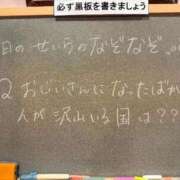 必ず黒板を書きましょう
日のせいらのなぞなぞ。
Q おじいさんになったばか
人が沢山いる国は??